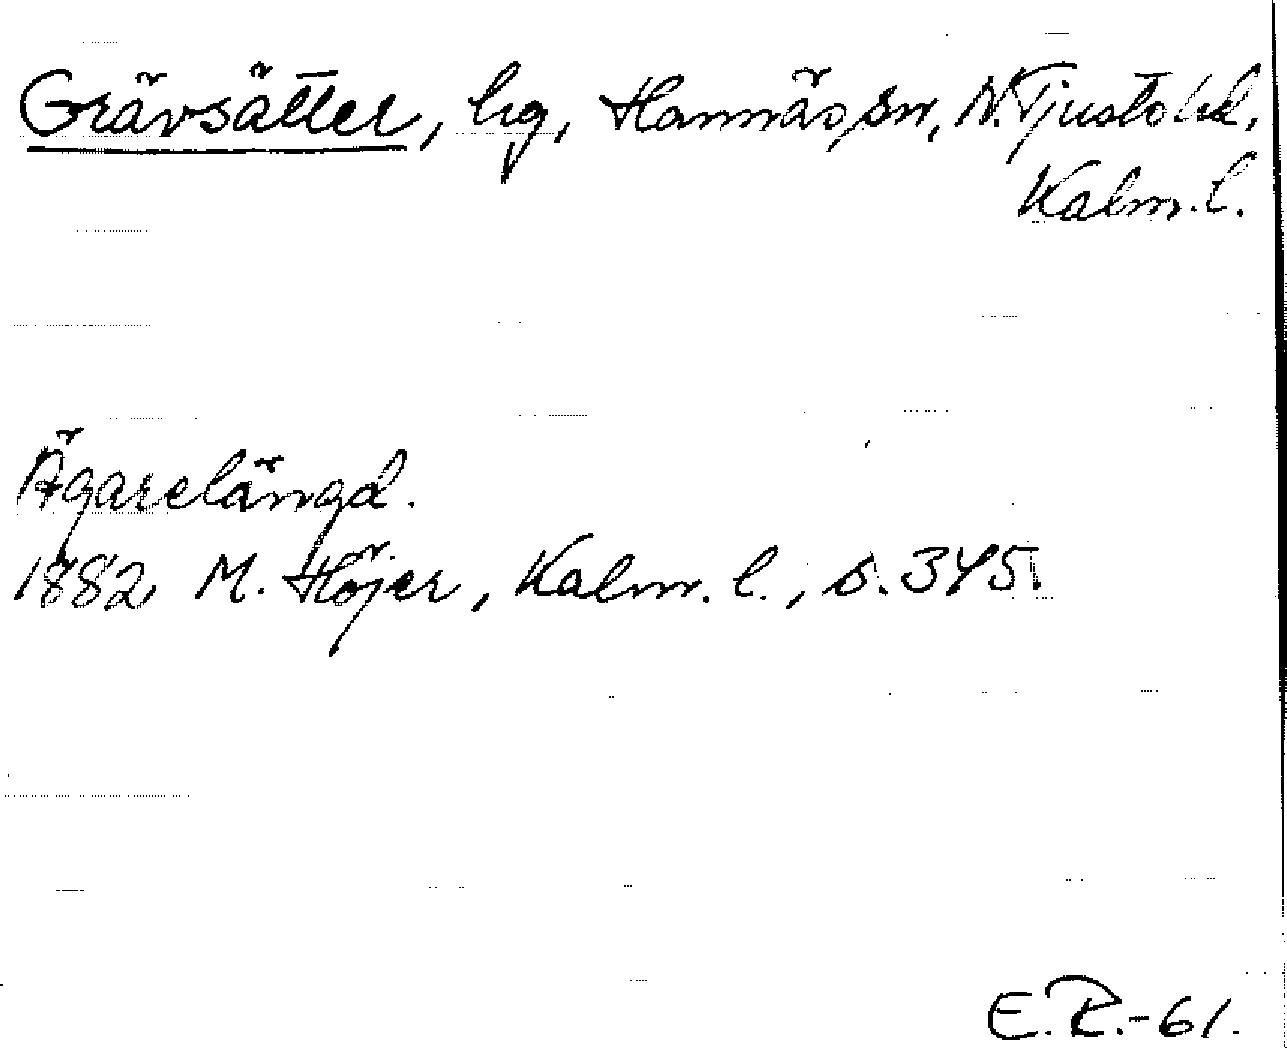 Grävsätter, hg, Hannäs sn, N. Tjusts hd,
Kalm. l.
Ägarelängd.
1882 M. Höjer, Kalm. l., s. 345.
E. R. -61.